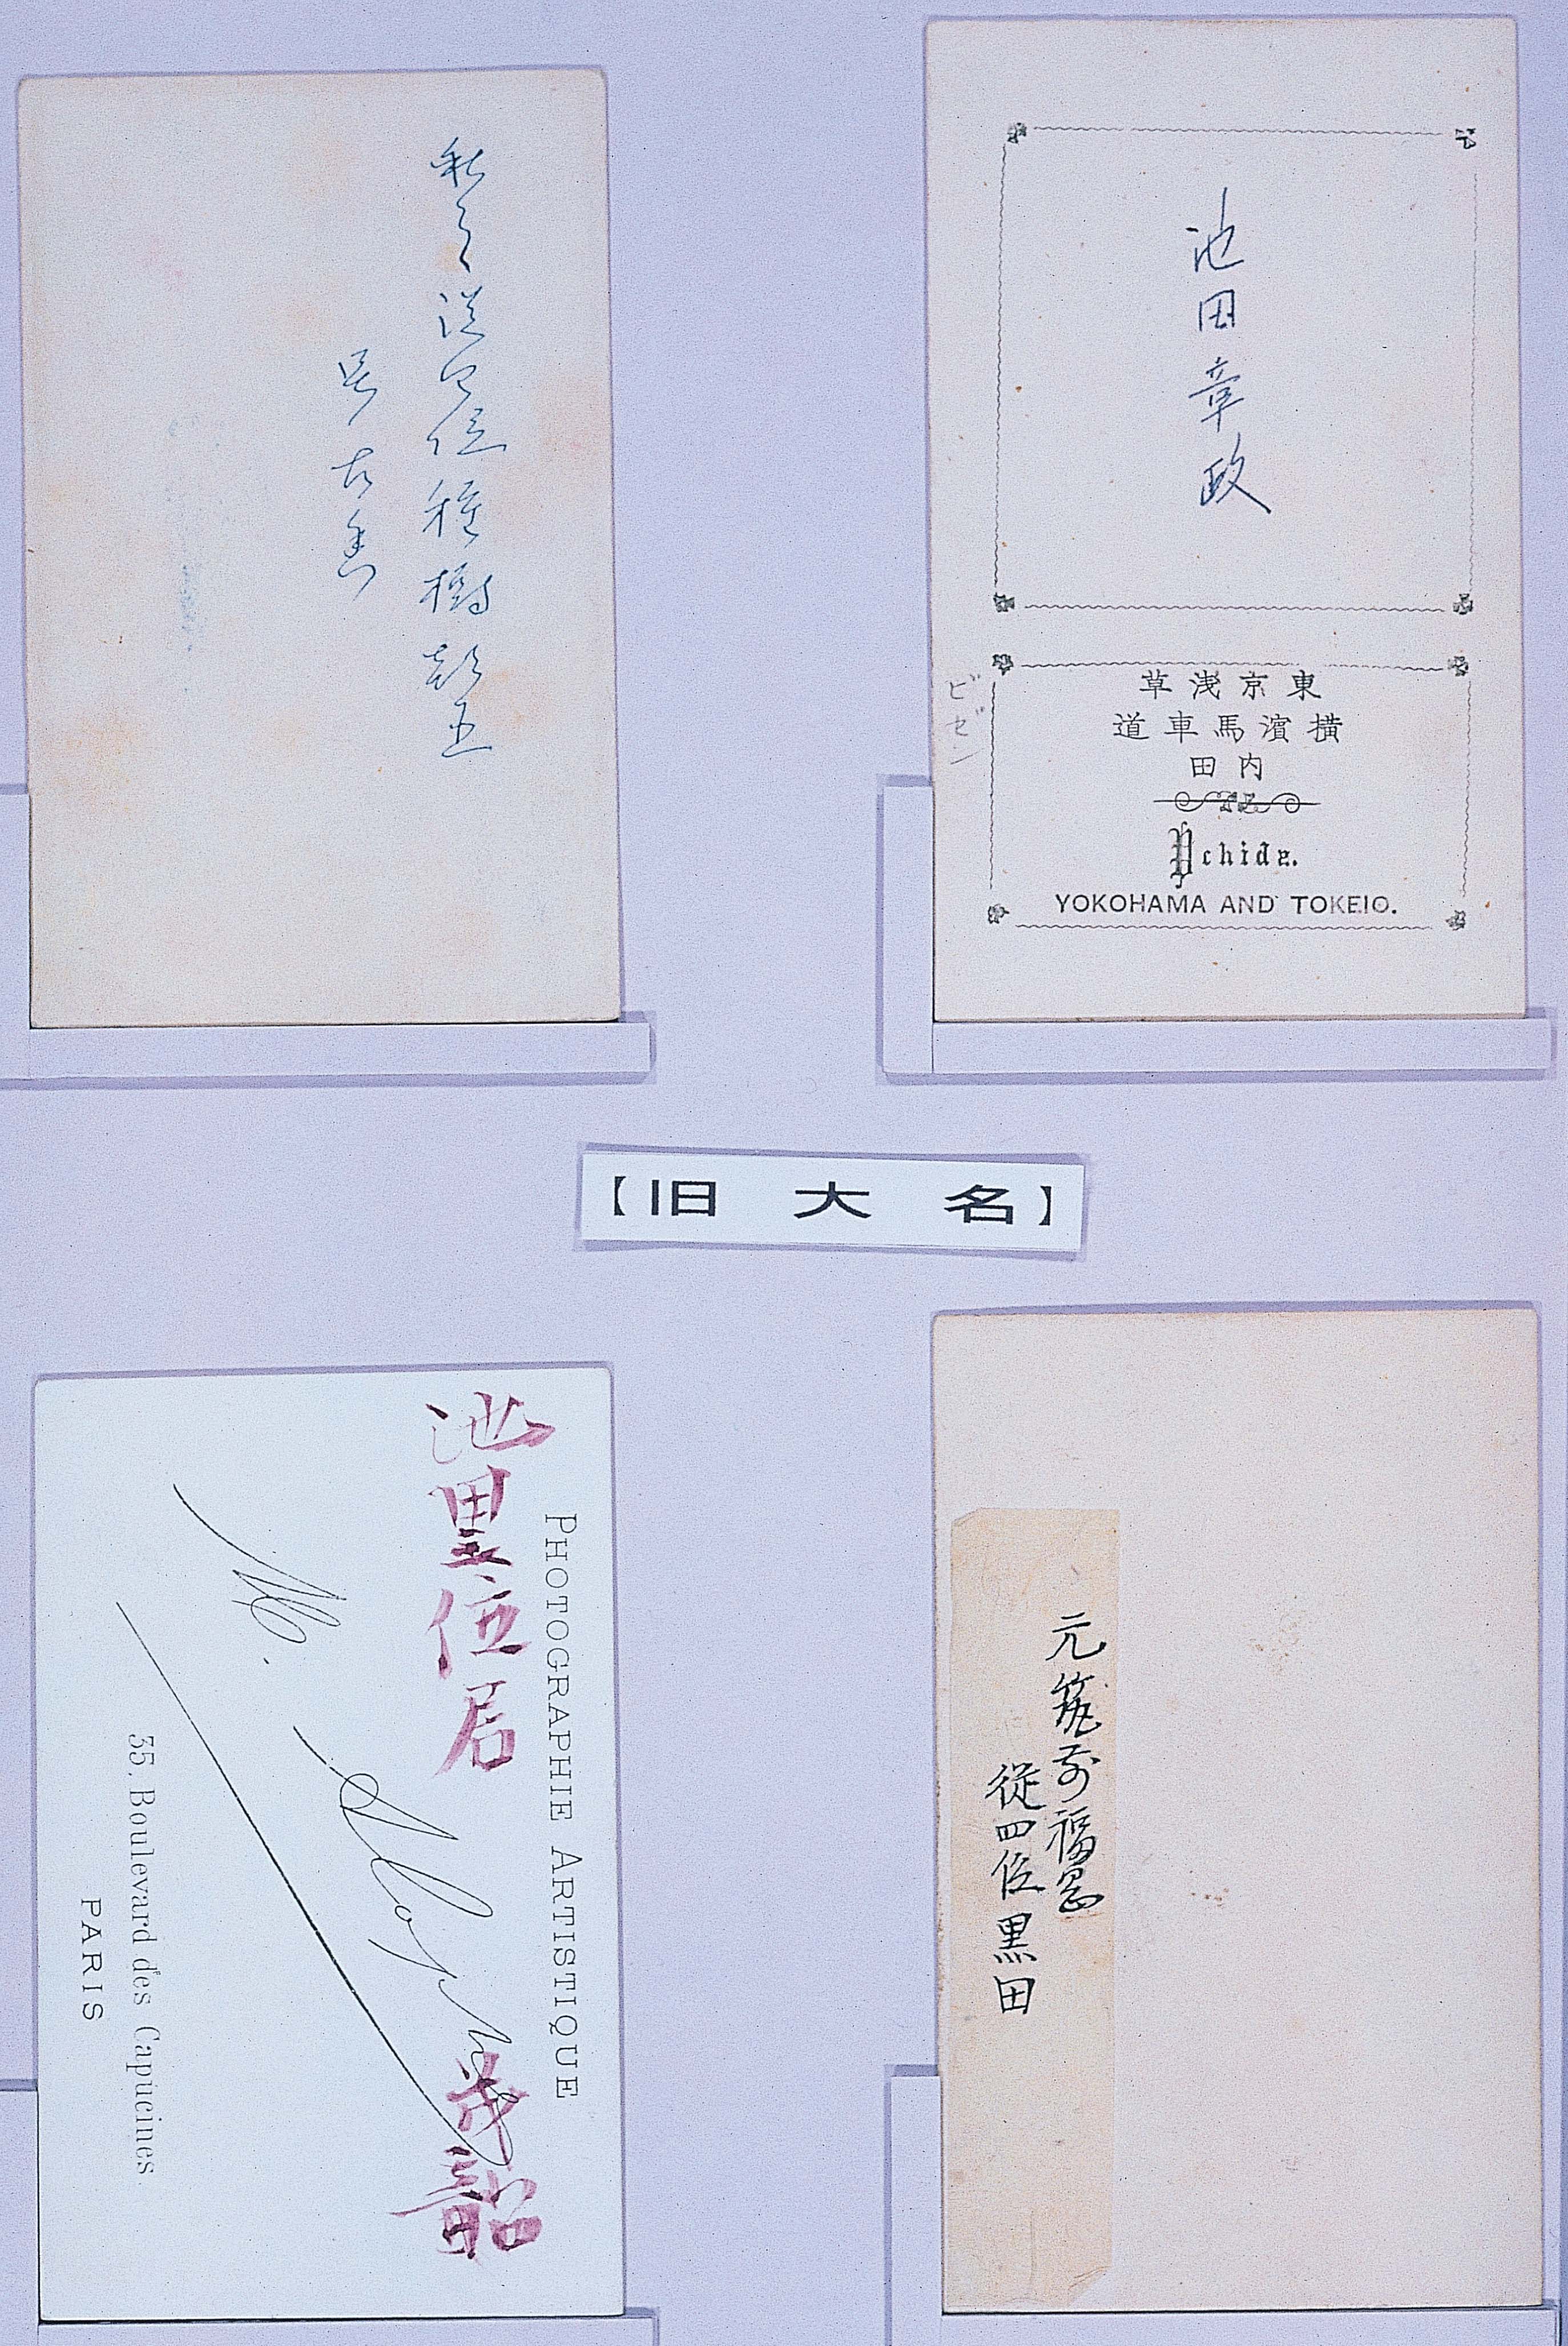 池田章政
東京浅草
横濱馬車道
内田
Uchida.
YOKOHAMA AND TOKEIO.
ビゼン
秋月従四位種樹
号古香
【旧大名】
元筑前福岡
従四位黒田
PHOTOGRAPHIE ARTISTIQUE
池田位君 茂韶
35, Boulevard des Capucines
PARIS